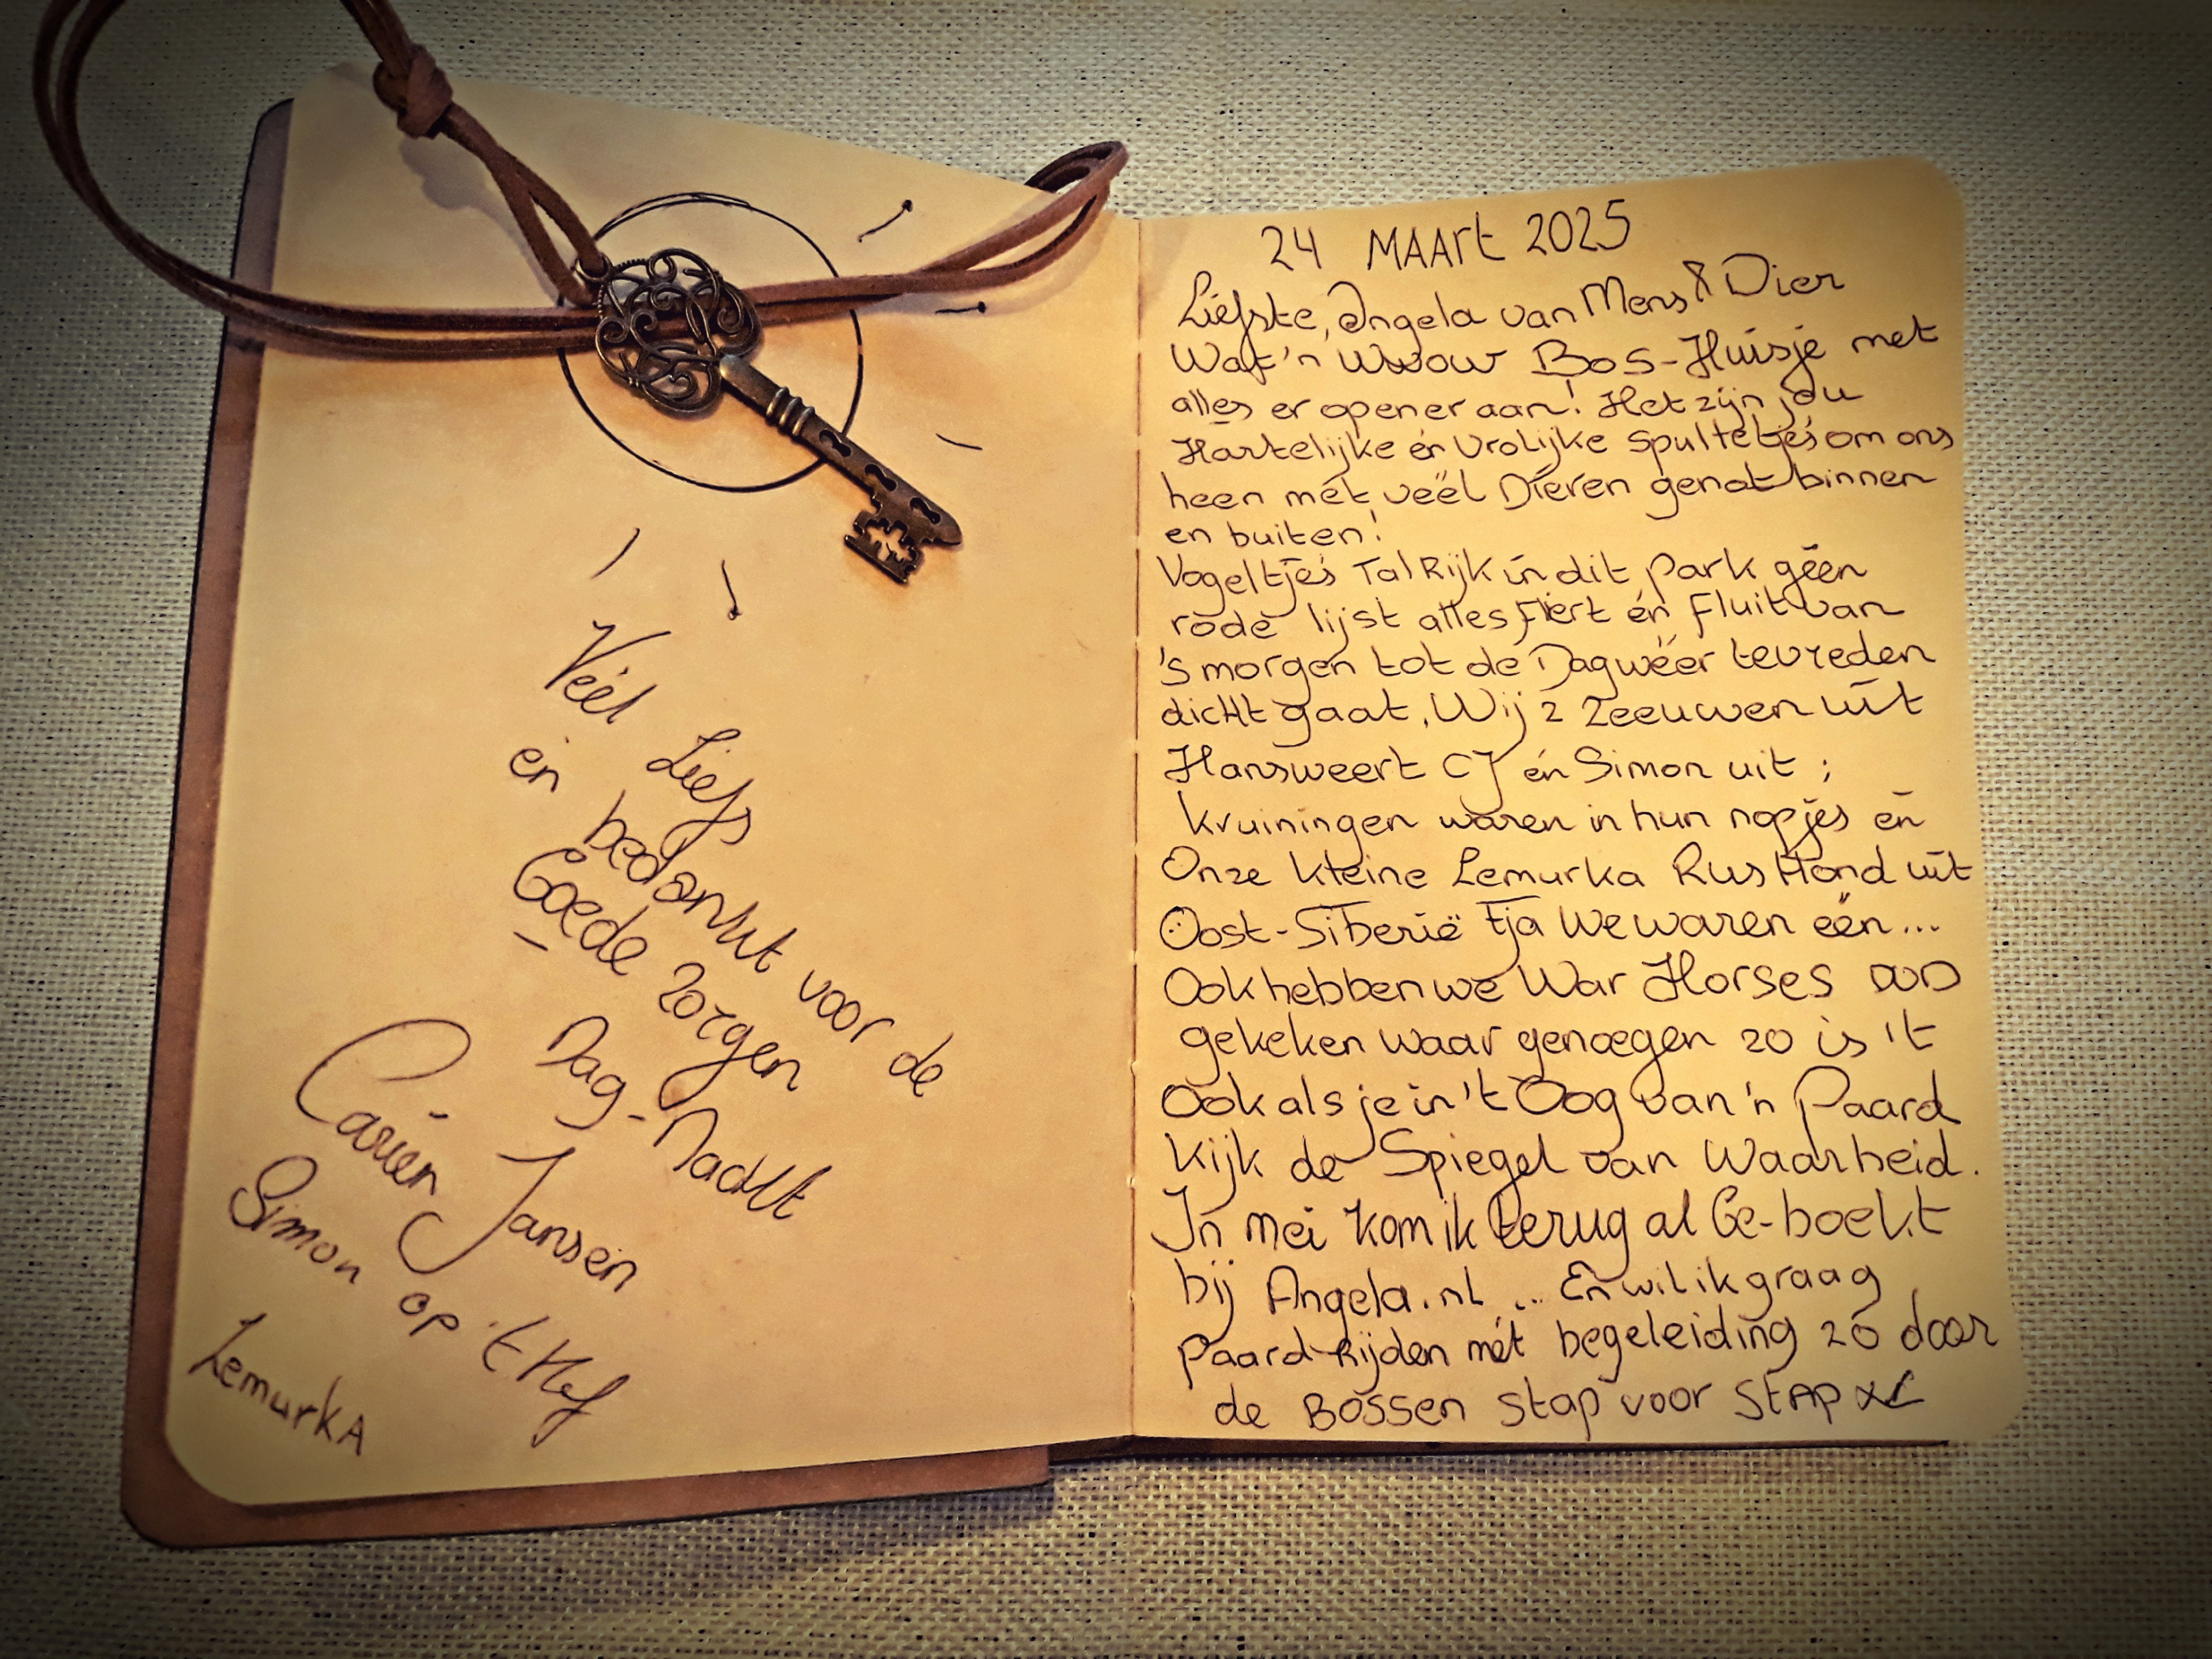 Véél Liefs
én bedankt voor de
Goede zorgen
Dag-Nacht
Carien Jansen
Simon op 't Hof
LemurkA
24 MAArt 2025
Liefste, Angela van Mens & Dier
Wat 'n Wwow Bos-Huisje met
alles er op en er aan! Het zijn jou
Hartelijke én Vrolijke spulletjes om ons
heen mét veël Dieren genot binnen
en buiten!
Vogeltjes TalRijk in dit park géén
rode lijst alles Fliert én Fluit van
's morgen tot de Dag wéér tevreden
dicht gaat, Wij 2 Zeeuwen uit
Hansweert CJ én Simon uit ;
Kruiningen waren in hun nopjes en
Onze kleine Lemurka Rus Hond uit
Oost-Siberië Tja We waren één...
Ook hebben we War Horses DVD
gekeken waar genoegen zo is 't
Ook als je in 't Oog van 'n Paard
Kijk de Spiegel van Waarheid.
In mei kom ik terug al Ge-boekt
bij Angela.nl ... En wil ik graag
Paard-Rijden mét begeleiding zo door
de Bossen stap voor STAP